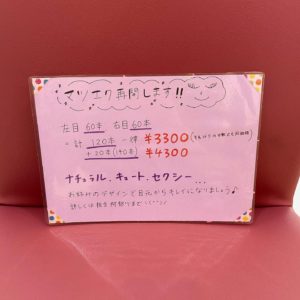 マツエク再開します!!
左目 60本 右目 60本
計 120本 一律 ¥3300
+20本(140本) ¥4300
ナチュラル、キュート、セクシー...
お好みのデザインで目元からキレイになりましょう♪
詳しくは担当